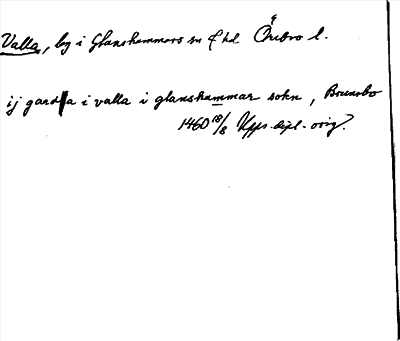 Valla, by i Glanshammars sn o hd Örebro l.
ij garda i valla i glanshammar sokn, Brunsbo
1460 18/8 Upps. dipl. orig.